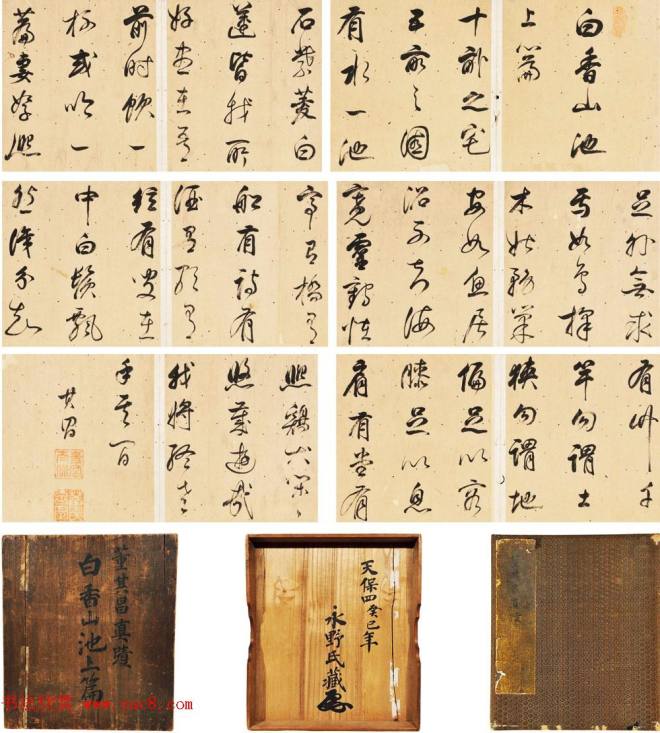 白香山池
上篇
十畝之宅
五畝之園
有水一池
有竹千
竿勿謂土
狹勿謂地
偏足以容
膝足以息
肩有堂有
亭有橋有
船有詩有
酒有歌有
絃有叟在
中白鬚飄
然識分知
足外無求
焉如鳥擇
木姑務巢
安如魚居
沼不知海
寬靈鶴怪
石紫菱白
蓮皆我所
好盡在吾
前時飲一
杯或吟一
篇妻孥熙
熙鷄犬閑〻
悠哉遊哉
我將終老
乎其間
其昌
董其昌真蹟
白香山池上篇
天保四癸巳年
永野氏藏
书法欣赏 www.yac8.com